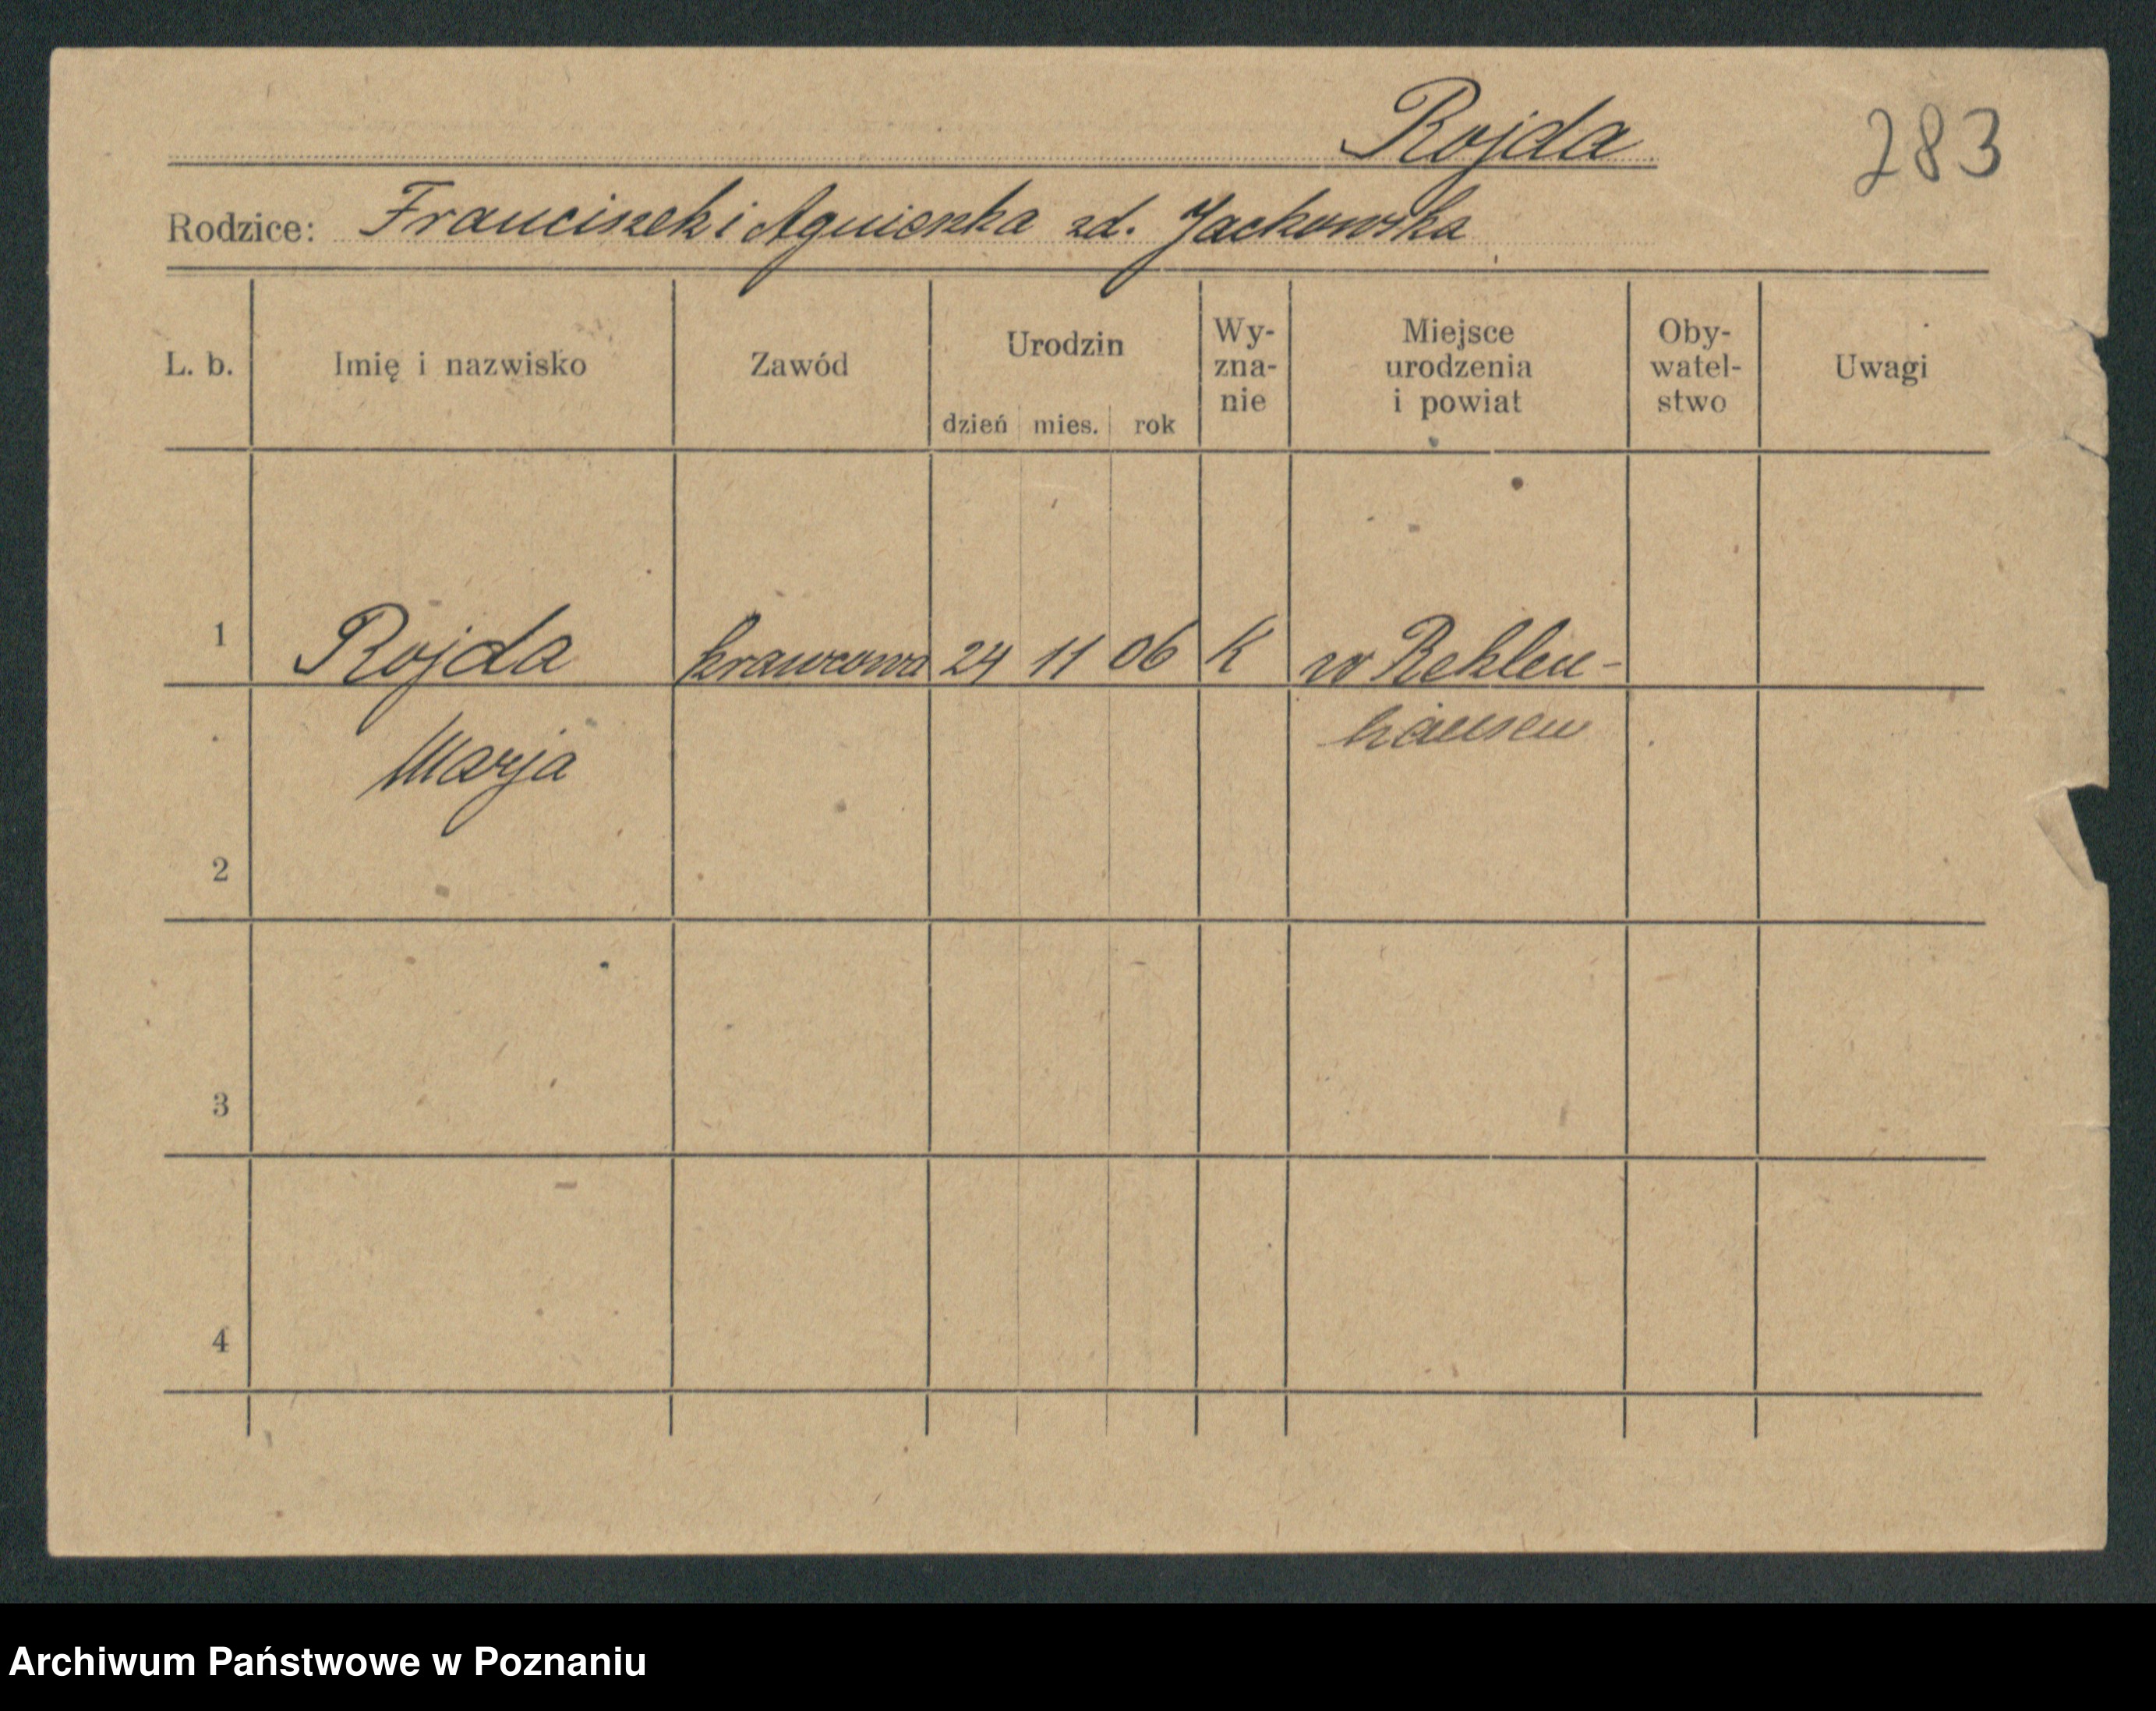 Rojda
283
Rodzice: Franciszek i Agnieszka zd. Jackowska
L. b. Imię i nazwisko Zawód Urodzin dzień mies. rok Wy-zna-nie Miejsce urodzenia i powiat Oby-watel-stwo Uwagi
1 Rojda krawcowa 24 11 06 K w Reklen-
Marja hausen
2
3
4
Archiwum Państwowe w Poznaniu